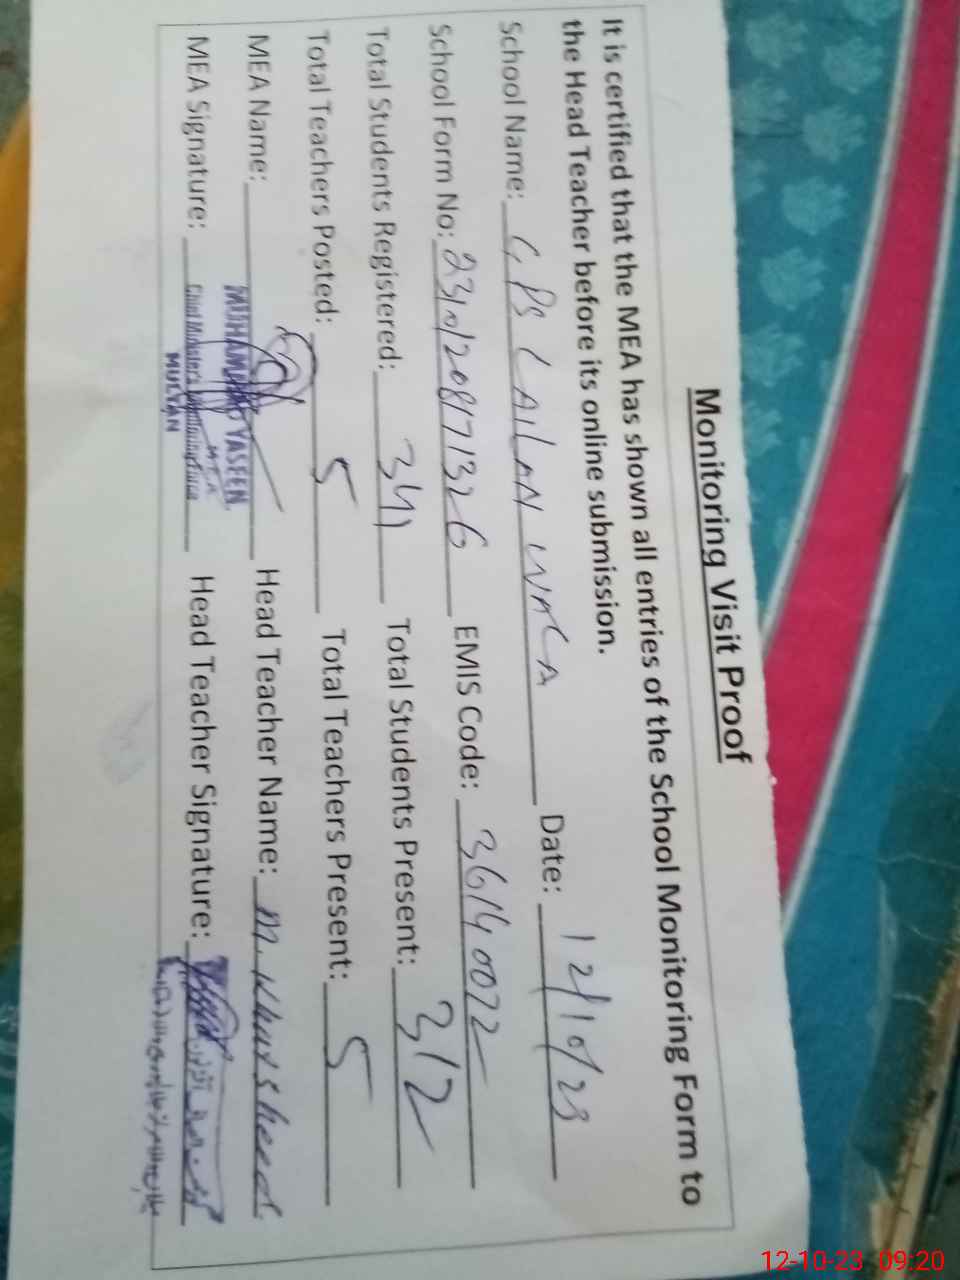 Monitoring Visit Proof
It is certified that the MEA has shown all entries of the School Monitoring Form to
the Head Teacher before its online submission.
School Name: GPS LAILAN WALA Date: 12/10/23
School Form No: 23101208171326 EMIS Code: 36140072
Total Students Registered: 341 Total Students Present: 312
Total Teachers Posted: 5 Total Teachers Present: 5
MEA Name: MUHAMMAD YASEEN Head Teacher Name: M. Khursheed
MEA Signature: Chief Minister's Monitoring Force Head Teacher Signature:
MULTAN
12-10-23 09:20